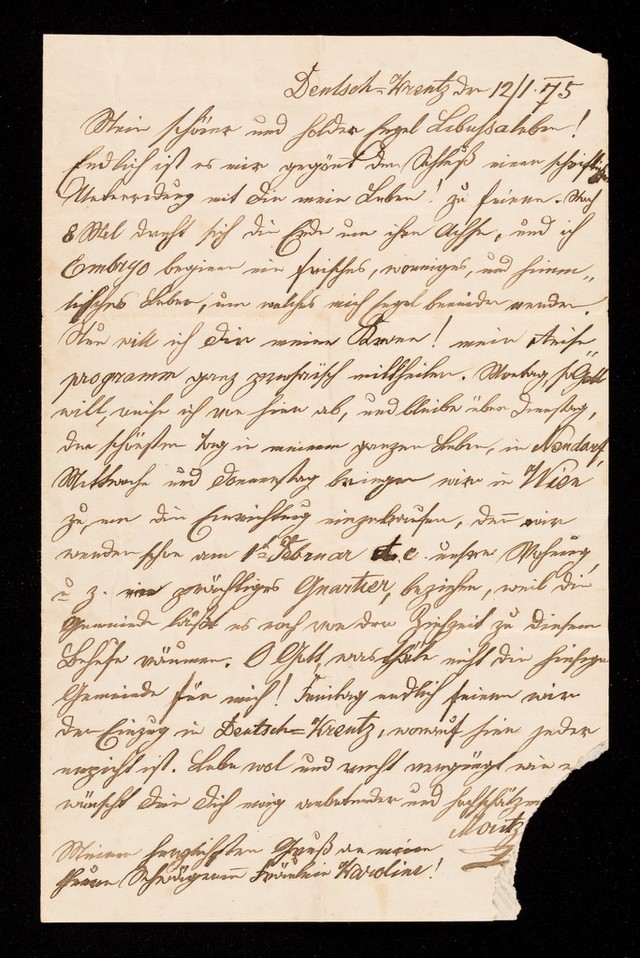 Deutsch=Kreutz den 12/I. 75
Mein schöner und holder Engel Libussaleben!
Endlich ist es mir gegönnt den Schluß einer schriftlichen
Unterredung mit Dir mein Leben! zu feiern. Noch
8 Mal dreht sich die Erde um ihre Achse, und ich
Embryo beginne ein frisches, wonniges, und himm„
lisches Leben, um welches mich Engel beneiden werden.
Nun will ich Dir meine Krone! mein Reise„
programm ganz prosaisch mittheilen. Montag, so Gott
will, reise ich von hier ab, und bleibe über Dienstag,
den schönsten Tag in meinem ganzen Leben, in Neudorf,
Mittwoche und Donnerstag bringen wir in Wien
zu, um die Einrichtung einzukaufen, denn wir
werden schon am 1ten Februar d. c. unsere Wohnung,
u. z. ein prächtiges Quartier, beziehen, weil die
Gemeinde läßt es noch vor der Ziehzeit zu diesem
Behufe räumen. O Gott, was thäte nicht die hiesige
Gemeinde für mich! Freitag endlich feiern wir
den Einzug in Deutsch=Kreutz, worauf hier jeder
erpicht ist. Lebe wol und recht vergnügt wie e
wünscht Dein Dich ewig anbetender und hochschätzen
Moritz
Meinen herzlichsten Gruß an meine
theure Schwägerinn Fräulein Karoline!